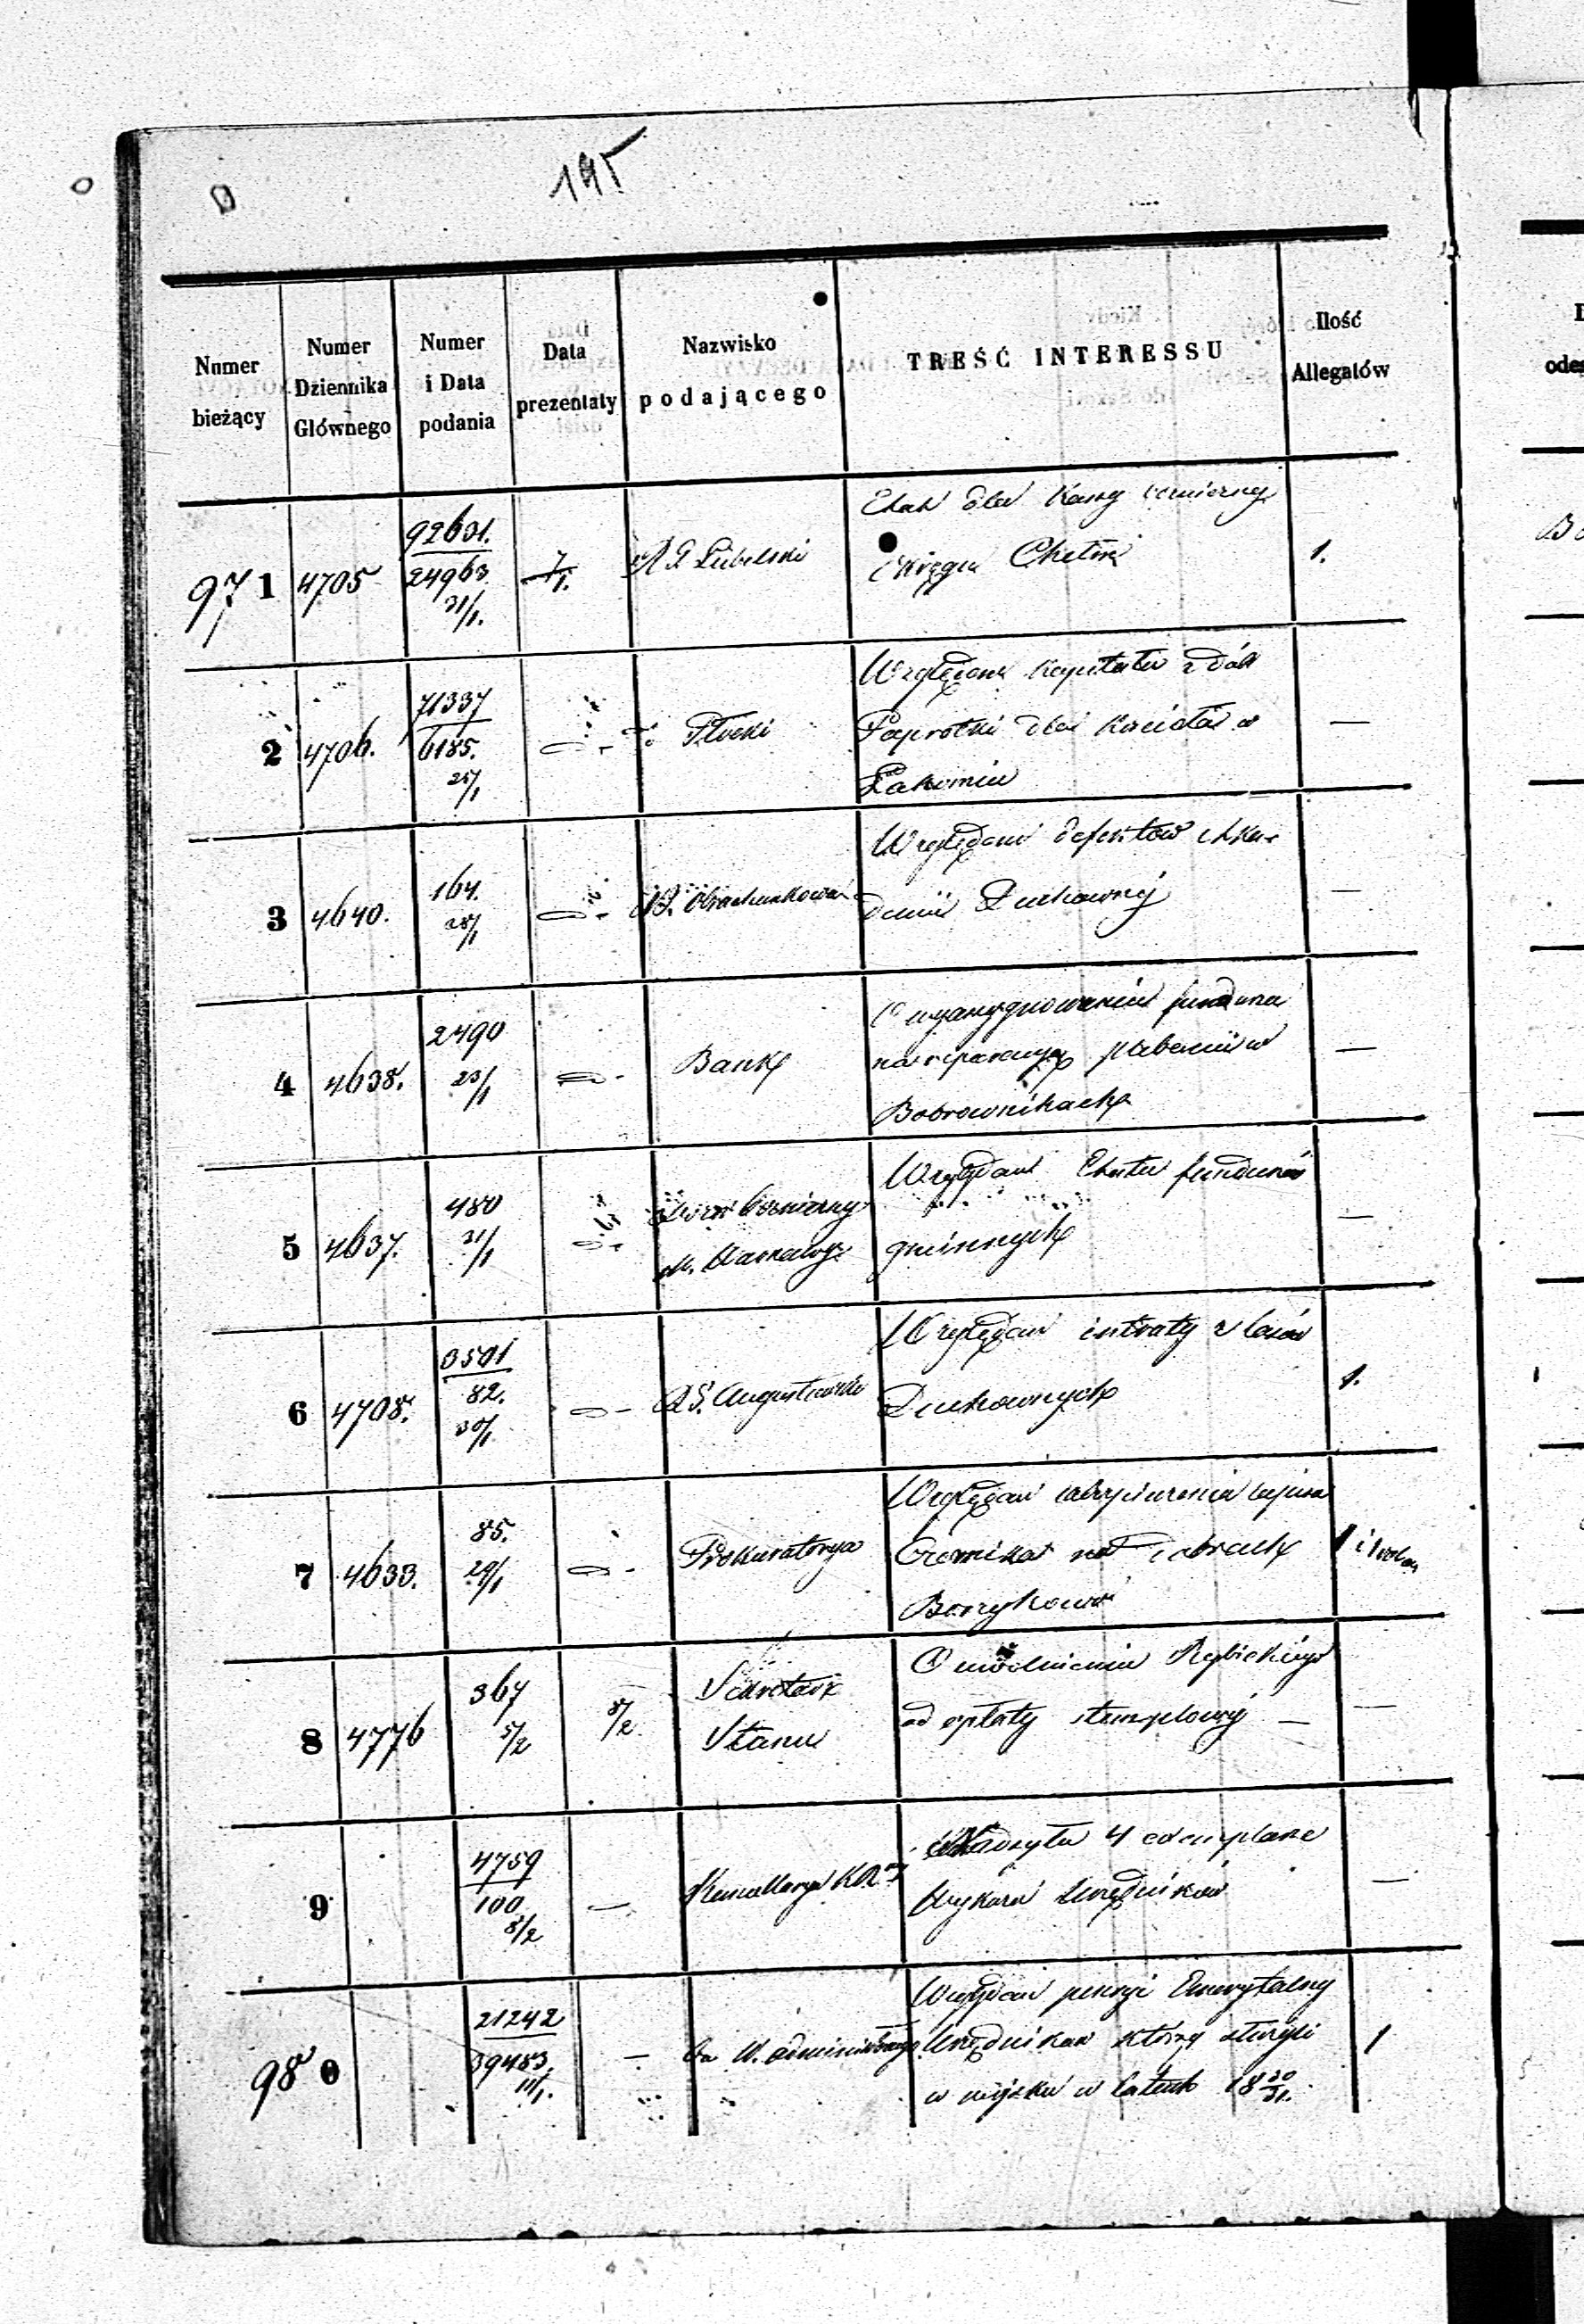 195
Numer bieżący
Numer Dziennika Głównego
Numer i Data podania
Data prezentaty
Nazwisko podającego
TREŚĆ INTERESSU
Ilość Allegatów
971 4705 92631. 24963. 31/1. 7/1. R G Lubelski
Etat dla Kassy
Okręgu 1.
2 4706. 71337 6185. 25/1 Płocki
Względem kapitału z dóbr
Paprotki dla kościoła w
Łakomiu —
3 4640. 164. 28/1 Obrachunkowa
Względem defektów
Duchowny —
4 4638. 2490 23/1 Bank
O wyasygnowaniu fundusza
na reparacyą plebanii w
Bobrownikach —
5 4637. 480 31/1
Względem Etatu funduszów
gminnych —
6 4708. 3501 82. 30/1 R G. Augustowski
Względem intraty z lasów
Duchownych 1.
7 4633. 85. 29/1 Prokuratorya
Względem
na dobrach
Borzykowa 1
8 4776 367 5/2 8/2 Sekretarz
Stanu
O uwolnieniu Rybickiego
od opłaty stemplowéj —
9 4759 100 8/2 — Kancellarya
Nadsyła 4 exemplarze
Wykazu Urzędników —
980 21242 39483. 11/1. —
Względem pensyi Emerytalnéj
Urzędnikom którzy służyli
w wojsku w latach 18 30/31. 1